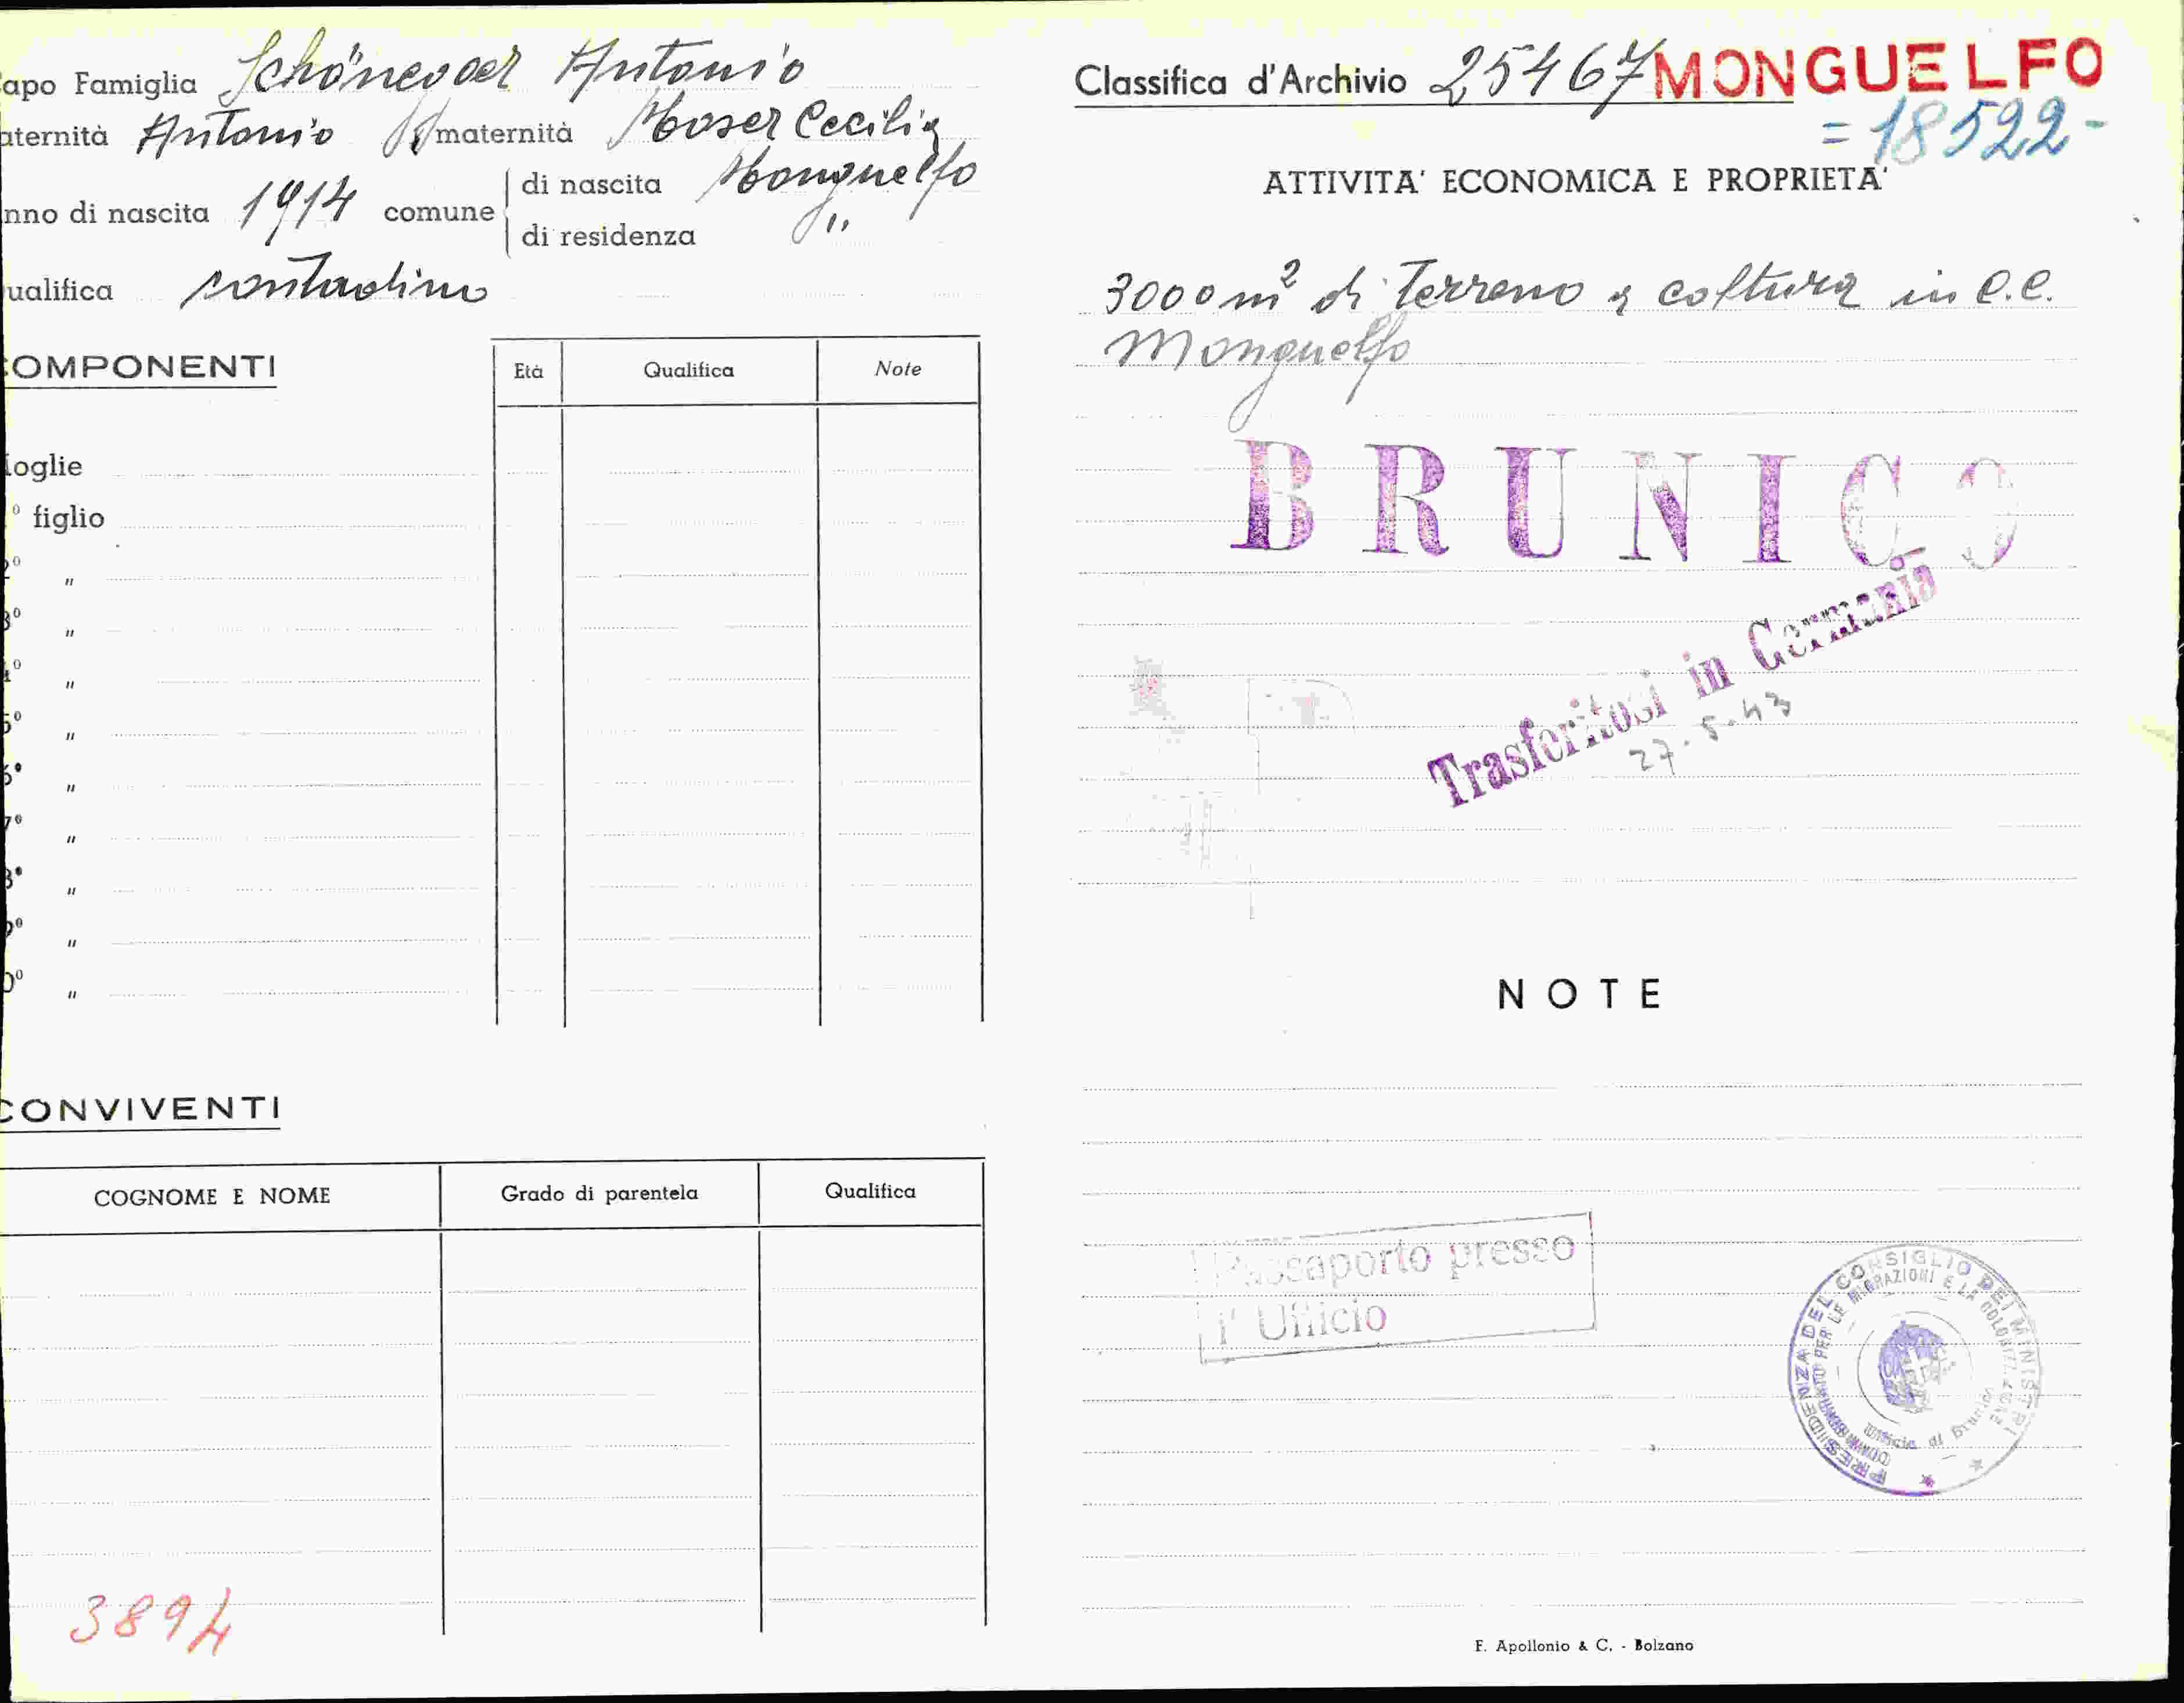 apo Famiglia Schönegger Antonio
aternità Antonio maternità Moser Cecilia
nno di nascita 1914 comune di nascita Monguelfo
di residenza "
ualifica contadino
OMPONENTI
Età Qualifica Note
oglie
º figlio
2º "
3º "
4º "
5º "
6º "
7º "
8º "
9º "
0º "
CONVIVENTI
COGNOME E NOME Grado di parentela Qualifica
3894
Classifica d'Archivio 25467 MONGUELFO
=18522-
ATTIVITA' ECONOMICA E PROPRIETA'
3000 m² di terreno a coltura in C.C.
Monguelfo
BRUNICO
Trasferitosi in Germania
27.5.43
NOTE
Passaporto presso
l'Ufficio
PRESIDENZA DEL CONSIGLIO DEI MINISTRI
PER LE MIGRAZIONI E LA COLONIZZAZIONE
Ufficio di Brunico
F. Apollonio & C. - Bolzano